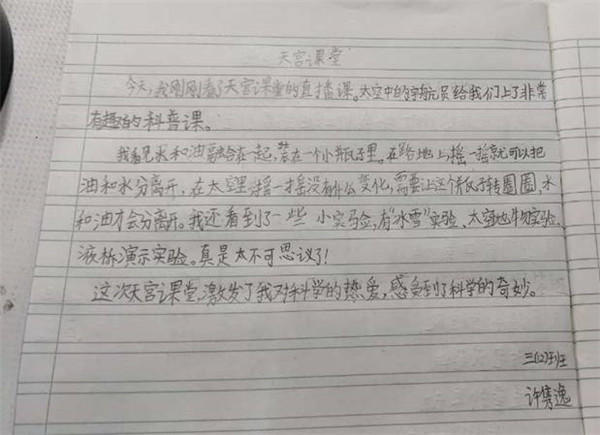 天宫课堂
今天,我刚刚看了天宫课堂的直播课。太空中的宇航员给我们上了非常
有趣的科普课。
我看见水和油融合在一起,装在一个小瓶子里。在陆地上摇一摇就可以把
油和水分离开,在太空里摇一摇没有什么变化,需要让这个瓶子转圈圈,水
和油才会分离开。我还看到了一些小实验,有“冰雪”实验、太空抛物实验、
液桥演示实验。真是太不可思议了!
这次天宫课堂,激发了我对科学的热爱,感受到了科学的奇妙。
三(12)班
许隽逸